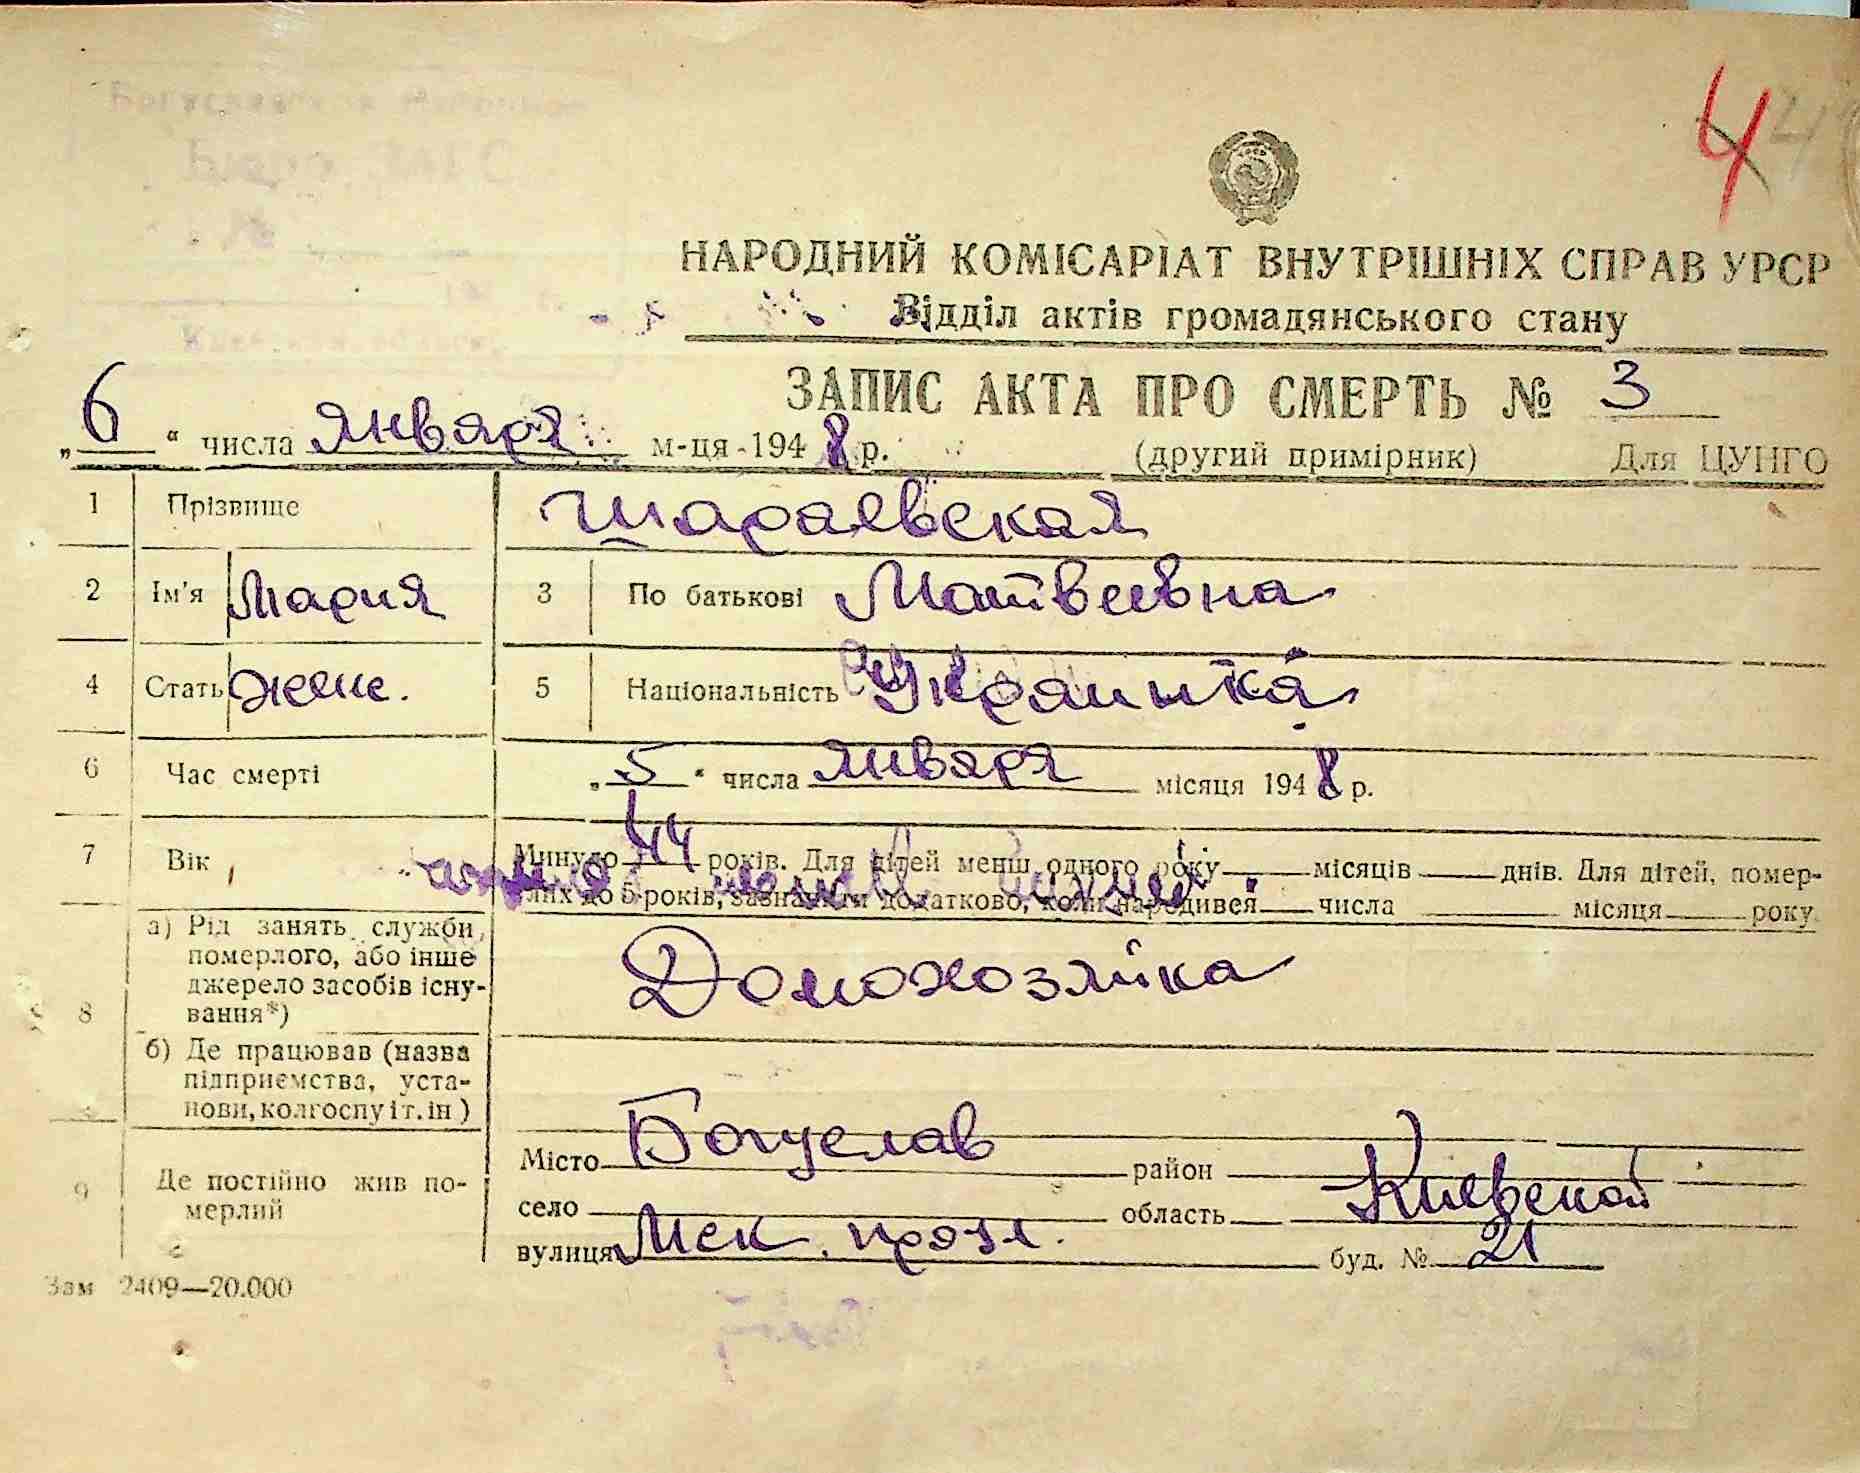 4
НАРОДНИЙ КОМІСАРІАТ ВНУТРІШНІХ СПРАВ УРСР
Відділ актів громадянського стану
ЗАПИС АКТА ПРО СМЕРТЬ № 3
„ 6 “ числа января м-ця 194 8 р. (другий примірник) Для ЦУНГО
1 Прізвище Шараевская
2 Ім'я Мария 3 По батькові Матвеевна
4 Стать женс. 5 Національність Украинка
6 Час смерті „ 5 “ числа января місяця 194 8 р.
7 Вік Минуло 44 років. Для дітей менш одного року місяців днів. Для дітей, помер-
лих до 5 років, зазначити додатково, коли народився числа місяця року
8 а) Рід занять, служби померлого, або інше джерело засобів існу-вання*) Домохозяйка
б) Де працював (назва підприємства, уста-нови, колгоспу і т. ін.)
9 Де постійно жив по-мерлий Місто Богуслав район
село область Киевской
вулиця буд. № 21
Зам 2409—20.000